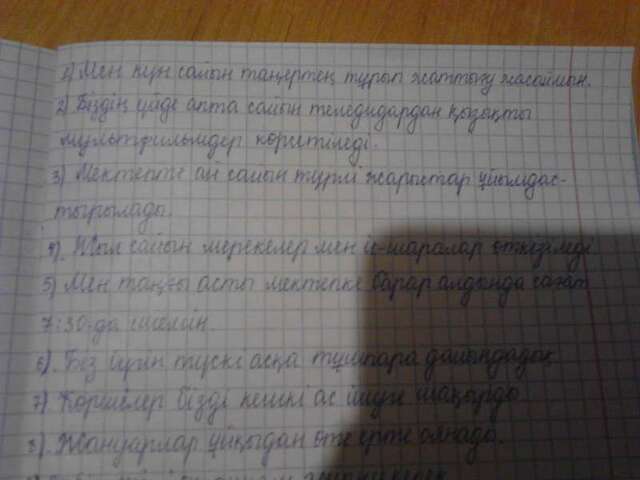 1) Мен күн сайын таңертең тұрып жаттығу жасаймын.
2) Біздің үйде апта сайын теледидардан қызықты
мультфильмдер көрсетіледі.
3) Мектепте ай сайын түрлі жарыстар ұйымдас-
тырылады.
4) Жыл сайын мерекелер мен іс-шаралар өткізіледі
5) Мен таңғы асты мектепке барар алдында сағат
7:30-да ішемін.
6). Біз бүгін түскі асқа тұшпара дайындадық
7) Көршілер бізді кешкі ас ішуге шақырды
8). Жануарлар ұйқыдан өте ерте оянады.